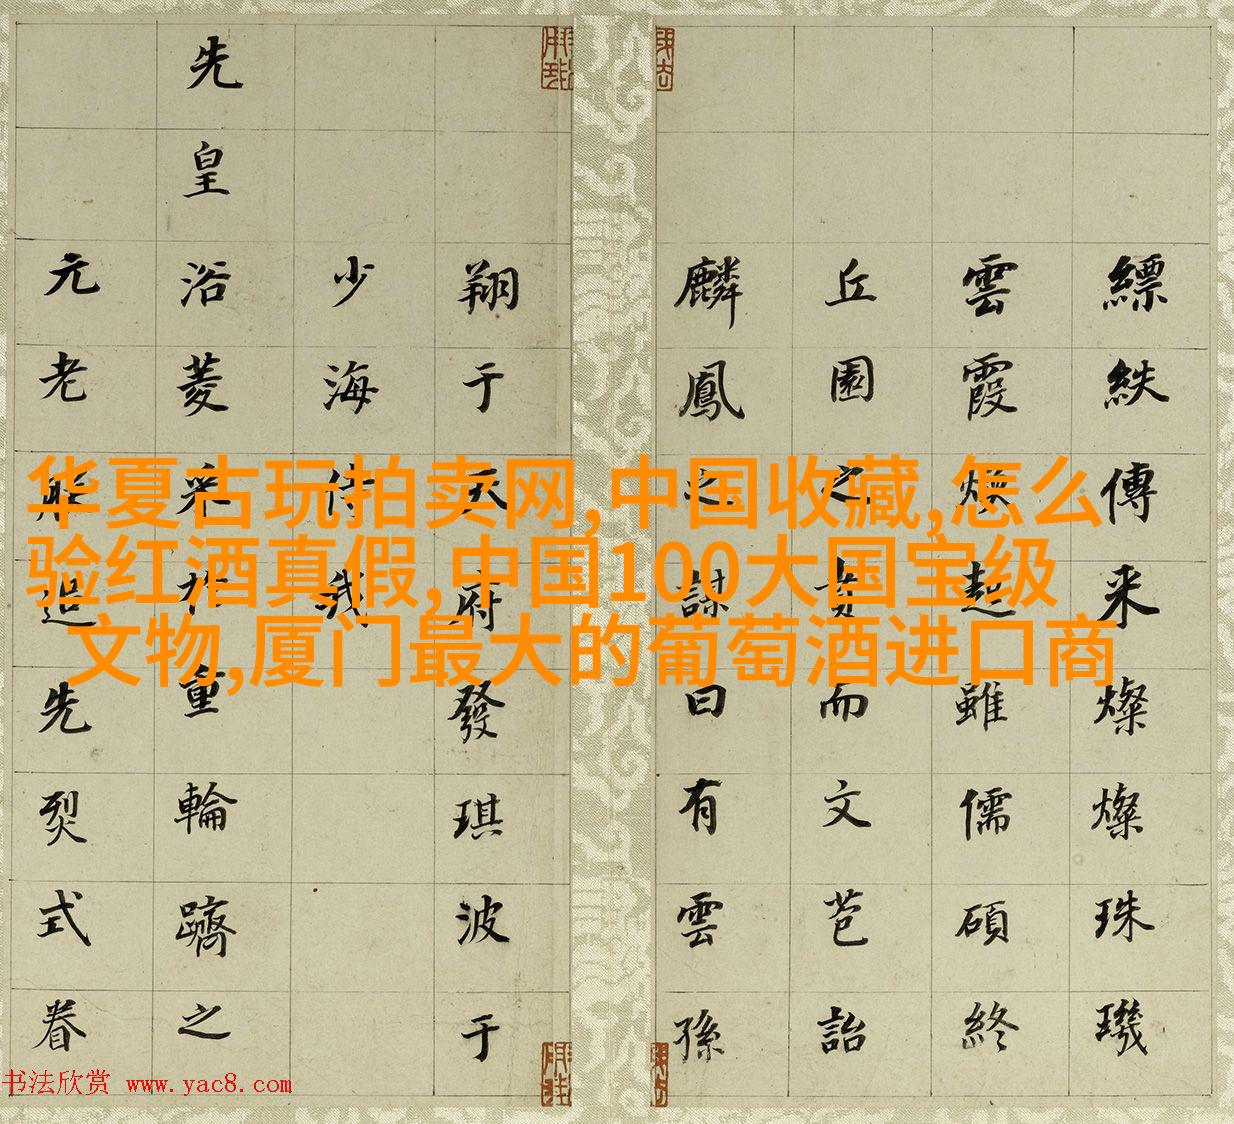 縹紩傳采燦燦珠璣
雲霞雖儒碩終
丘園之賁而文苞詒
麟鳳之謀曰有雲孫
翔于天府發琪波于
少海侍我
先皇浴菱采重輪躋之
元老能追先烈式眷
华夏古玩拍卖网,中国收藏,怎么
验红酒真假,中国100大国宝级
文物,厦门最大的葡萄酒进口商
书法欣赏 www.yac8.com